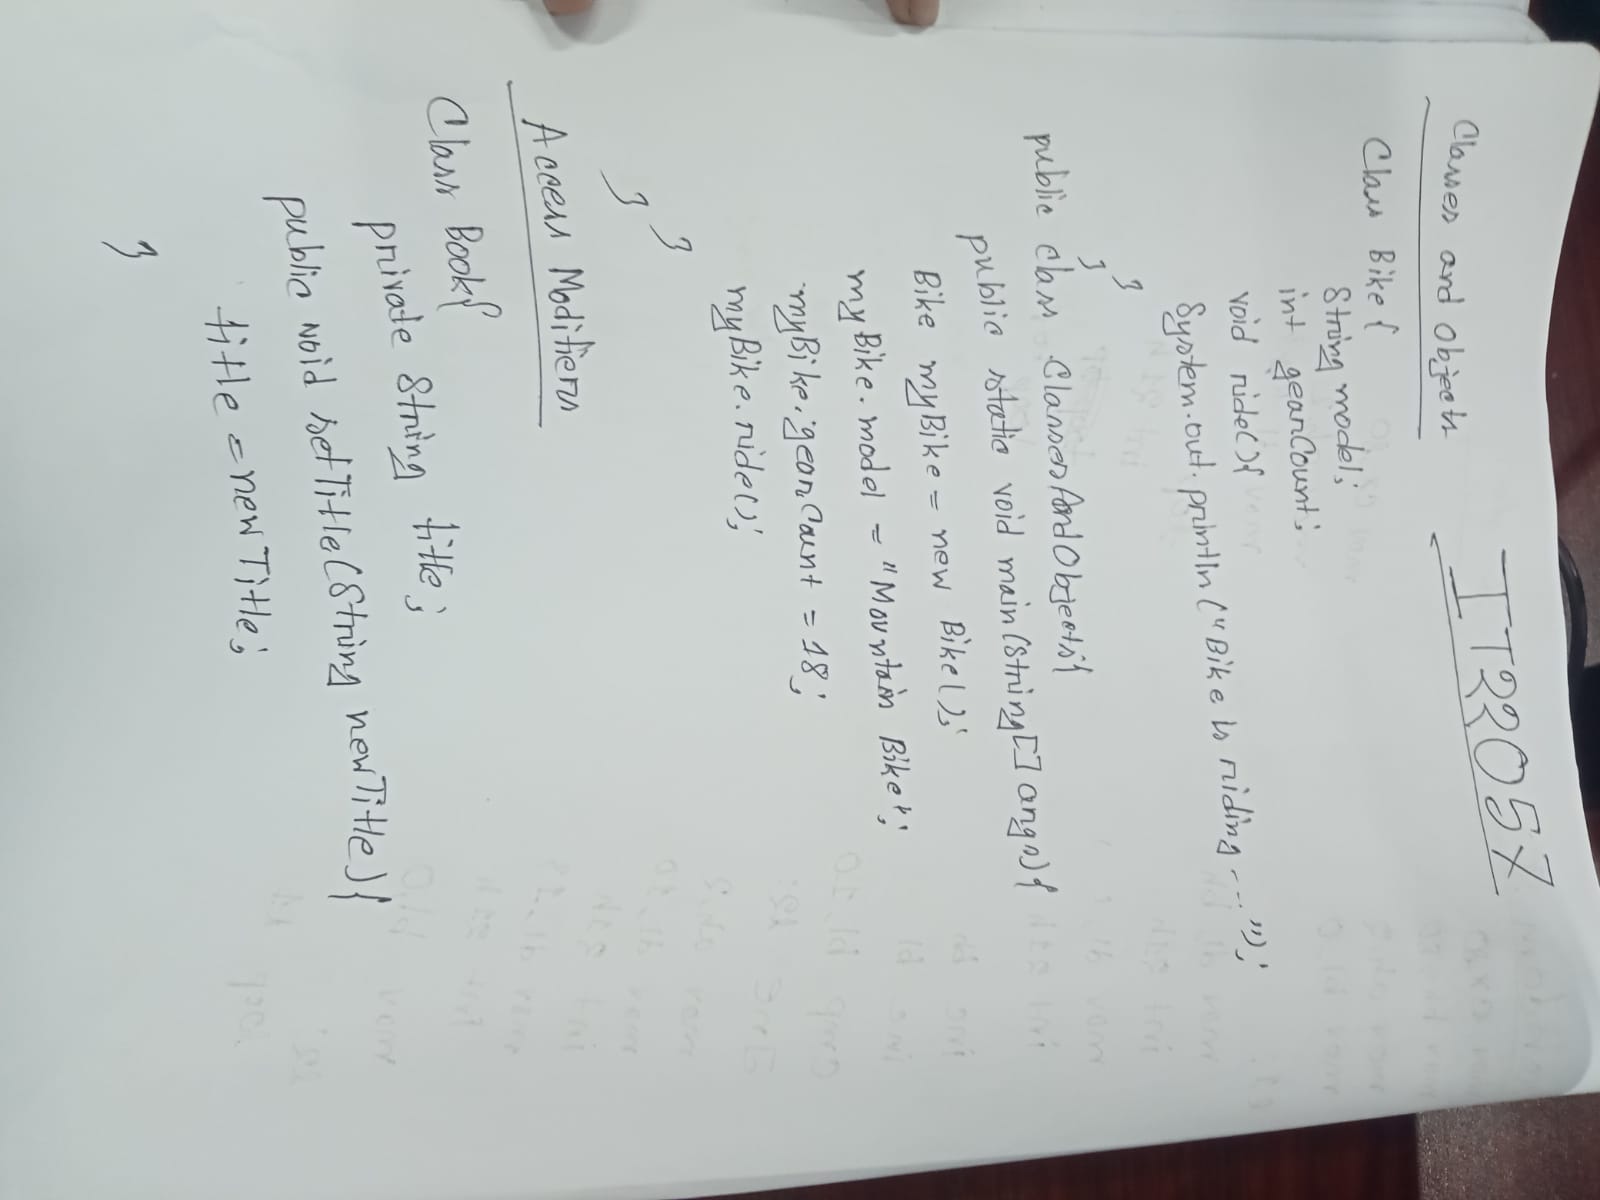 IT22057
Classes and Objects
Class Bike{
String model;
int gearCount;
void ride(){
System.out.println("Bike is riding...");
}
}
public class ClassesAndObjects{
public static void main(String[] args){
Bike myBike = new Bike();
myBike.model = "Mountain Bike";
myBike.gearCount = 18;
myBike.ride();
}
}
Access Modifiers
Class Book{
private String title;
public void setTitle(String newTitle){
title = newTitle;
}